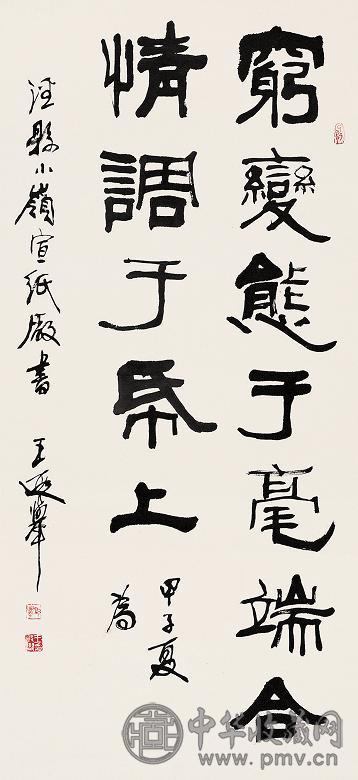 窮變態于毫端合
情調于帋上
甲子夏
為
涇縣小嶺宣紙廠書
王遐舉
中华收藏网
www.pmv.cn